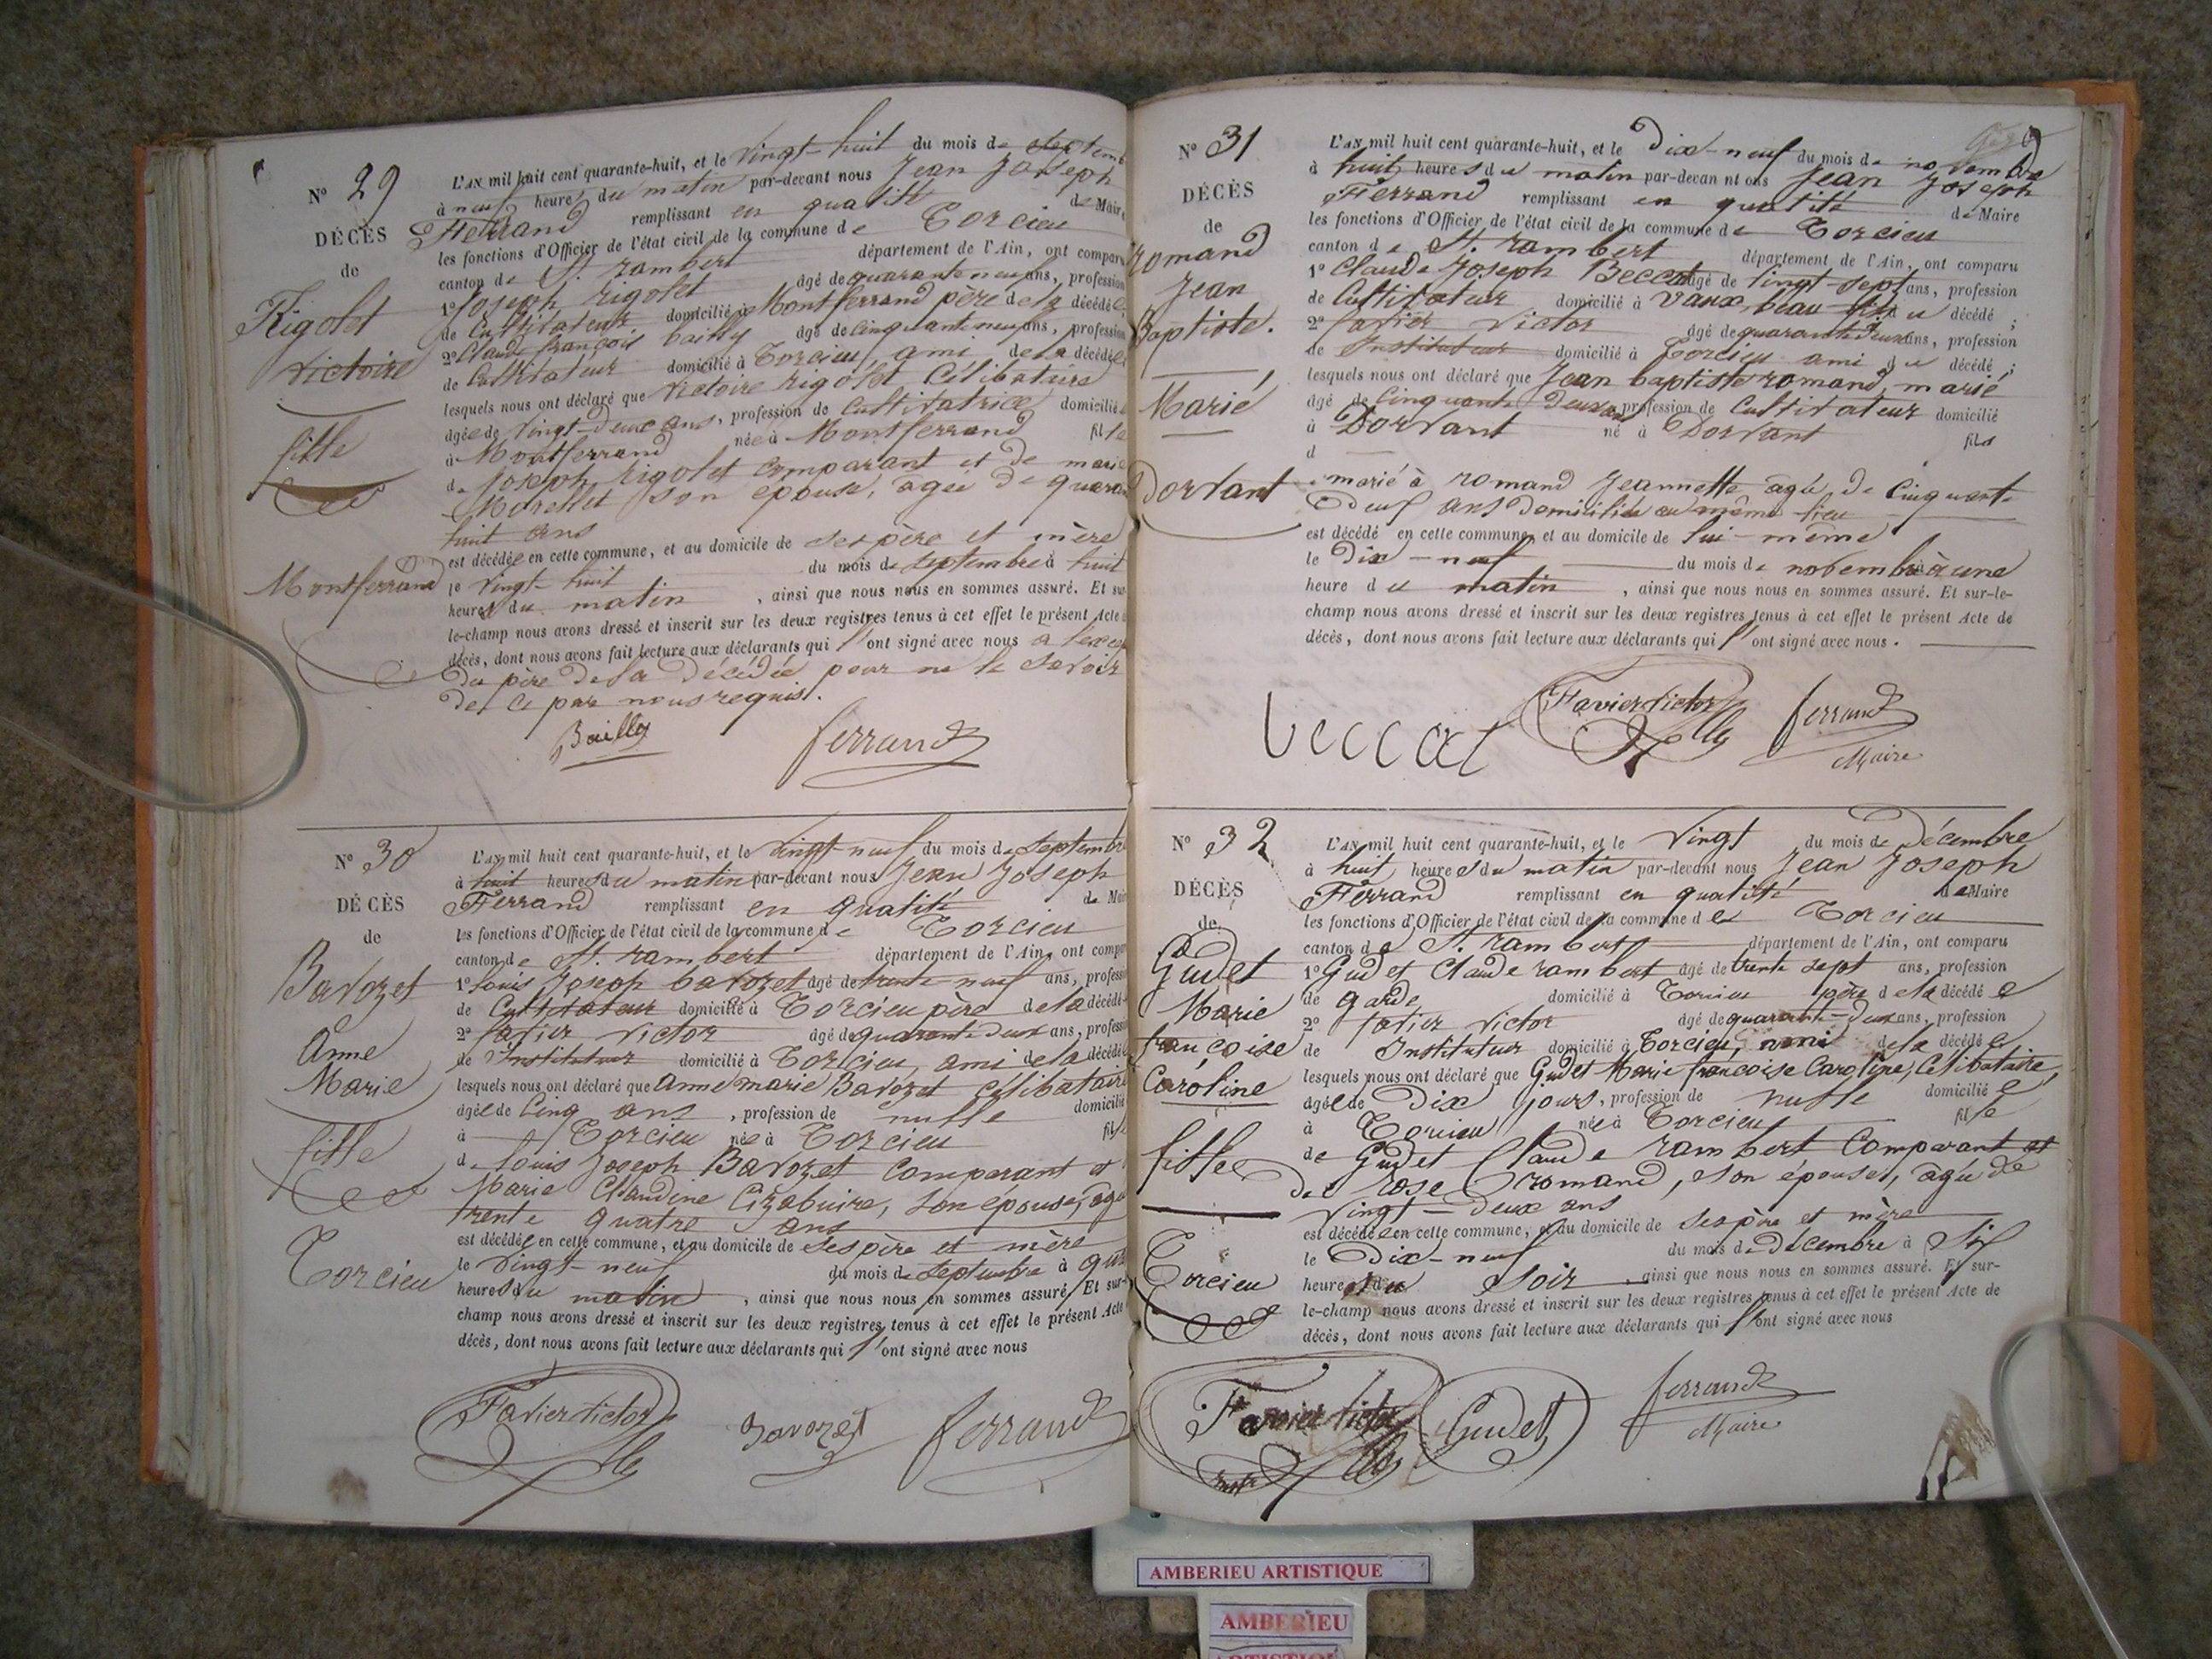 N° 29
DÉCÈS
de
Rigolet
Victoire
fille
Montferrand
L'AN mil huit cent quarante-huit, et le Vingt-huit du mois de septemb
à neuf heures du matin par-devant nous Jean Joseph
Ferrand remplissant en qualité de Maire
les fonctions d'Officier de l'état civil de la commune de Torcieu
canton de St. rambert département de l'Ain, ont comparu
1° Joseph rigolet âgé de quarante neuf ans, profession
de Cultivateur domicilié à Montferrand père de la décédée
2° Claude françois bailly âgé de Cinquante neuf ans, profession
de Cultivateur domicilié à Torcieu, ami de la décédée
lesquels nous ont déclaré que Victoire rigolet Célibataire
âgée de Vingt-deux ans, profession de Cultivatrice domiciliée
à Montferrand née à Montferrand fille
de Joseph rigolet Comparant et de marie
Morellet son épouse, âgée de quara
huit ans
est décédée en cette commune, et au domicile de ses père et mère
le Vingt-huit du mois de septembre à huit
heures du matin, ainsi que nous nous en sommes assuré. Et sur
le-champ nous avons dressé et inscrit sur les deux registres tenus à cet effet le présent Acte
décès, dont nous avons fait lecture aux déclarants qui l'ont signé avec nous a lexcep
du père de la décédée pour ne le savoir
de ce par nous requis.
Bailly ferrand
N° 30
DÉCÈS
de
Bavozet
Anne
Marie
fille
Torcieu
L'AN mil huit cent quarante-huit, et le Vingt-neuf du mois de septembre
à huit heures du matin par-devant nous Jean Joseph
Ferrand remplissant en qualité de Mair
les fonctions d'Officier de l'état civil de la commune de Torcieu
canton de St. rambert département de l'Ain, ont compa
1° Louis Joseph bavozet âgé de trente neuf ans, profess
de Cultivateur domicilié à Torcieu père de la décédé
2° favier Victor âgé de quarante deux ans, profess
de Instituteur domicilié à Torcieu, ami de la décédée
lesquels nous ont déclaré que Anne marie Bavozet célibataire
âgée de Cinq ans, profession de nulle domicilié
à Torcieu née à Torcieu fille
de Louis Joseph Bavozet Comparant et
Marie Claudine son épouse, âgée
trente quatre ans
est décédée en cette commune, et au domicile de ses père et mère
le Vingt-neuf du mois de septembre à
heures du matin, ainsi que nous nous en sommes assuré. Et sur-
champ nous avons dressé et inscrit sur les deux registres tenus à cet effet le présent Acte
décès, dont nous avons fait lecture aux déclarants qui l'ont signé avec nous
Favier Victor Bavozet ferrand
N° 31
DÉCÈS
de
romand
Jean
Baptiste.
Marié
Dorvant
L'AN mil huit cent quarante-huit, et le Dix-neuf du mois de novembre
à huit heures du matin par-devan nt ous Jean Joseph
Ferrand remplissant en qualité de Maire
les fonctions d'Officier de l'état civil de la commune de Torcieu
canton de St. rambert département de l'Ain, ont comparu
1° Claude Joseph Beccat âgé de Vingt-sept ans, profession
de Cultivateur domicilié à Vaux, beau fils du décédé ;
2° favier Victor âgé de quarante deux ans, profession
de Instituteur domicilié à Torcieu ami du décédé ;
lesquels nous ont déclaré que Jean baptiste romand, marié
âgé de Cinquante deux ans profession de Cultivateur domicilié
à Dorvant né à Dorvant fils
d
marié à romand Jeannette âgée de Cinquante
deux ans domiciliée au même lieu
est décédé en cette commune, et au domicile de lui-même
le Dix-neuf du mois de novembre à une
heure du matin, ainsi que nous nous en sommes assuré. Et sur-le-
champ nous avons dressé et inscrit sur les deux registres tenus à cet effet le présent Acte de
décès, dont nous avons fait lecture aux déclarants qui l'ont signé avec nous.
beccat Favier Victor ferrand
Maire
N° 32
DÉCÈS
de
Gudet
Marie
françoise
Caroline
fille
Torcieu
L'AN mil huit cent quarante-huit, et le Vingt du mois de Décembre
à huit heures du matin par-devant nous Jean Joseph
Ferrand remplissant en qualité de Maire
les fonctions d'Officier de l'état civil de la commune de Torcieu
canton de St. rambert département de l'Ain, ont comparu
1° Gudet Claude rambert âgé de trente sept ans, profession
de garde domicilié à Torcieu père de la décédée
2° favier Victor âgé de quarante-deux ans, profession
de Instituteur domicilié à Torcieu, ami de la décédée
lesquels nous ont déclaré que Gudet Marie françoise Caroline, Célibataire,
âgée de Dix jours, profession de nulle domiciliée
à Torcieu née à Torcieu fille
de Gudet Claude rambert Comparant et
de rose romand, son épouse, âgée de
Vingt-deux ans
est décédée en cette commune, et au domicile de ses père et mère
le Dix-neuf du mois de Décembre à Six
heures du soir, ainsi que nous nous en sommes assuré. Et sur-
le-champ nous avons dressé et inscrit sur les deux registres tenus à cet effet le présent Acte de
décès, dont nous avons fait lecture aux déclarants qui l'ont signé avec nous
Favier Victor Gudet ferrand
Maire
AMBERIEU ARTISTIQUE
AMBERIEU
ARTISTIQUE